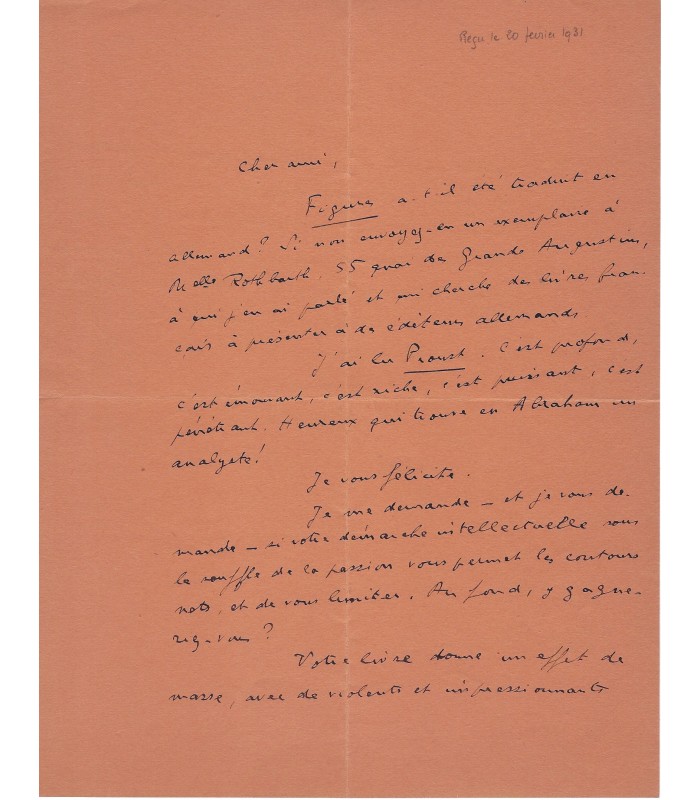 Reçu le 20 février 1931
Cher ami,
Figures a-t-il été traduit en
allemand? Si non envoyez-en un exemplaire à
Melle Rothbarth, 55 quai des Grands Augustins,
à qui j'en ai parlé et qui cherche des livres fran-
çais à présenter à des éditeurs allemands
J'ai lu Proust. C'est profond,
c'est émouvant, c'est riche, c'est puissant, c'est
pénétrant. Heureux qui trouve en Abraham un
analyste!
Je vous félicite.
Je me demande — et je vous de-
mande — si votre démarche intellectuelle sous
le souffle de la passion vous permet les contours
nets, et de vous limiter. Au fond, y gagne-
riez-vous?
Votre livre donne un effet de
masse, avec de violents et impressionnants